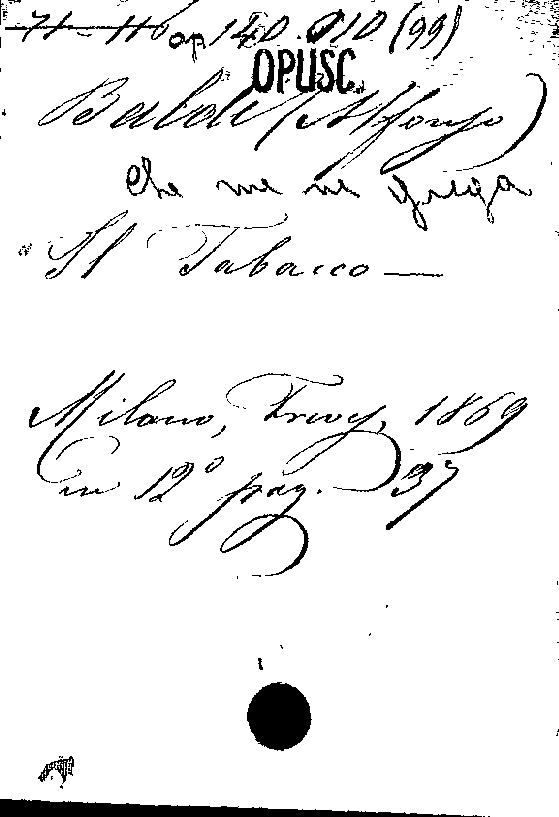 71-116 op 140.010 (99)
OPUSC.
Baldi (Alfonso)
Che me ne frega
Il Tabacco —
Milano, Treves, 1869
in 12° pag. 37